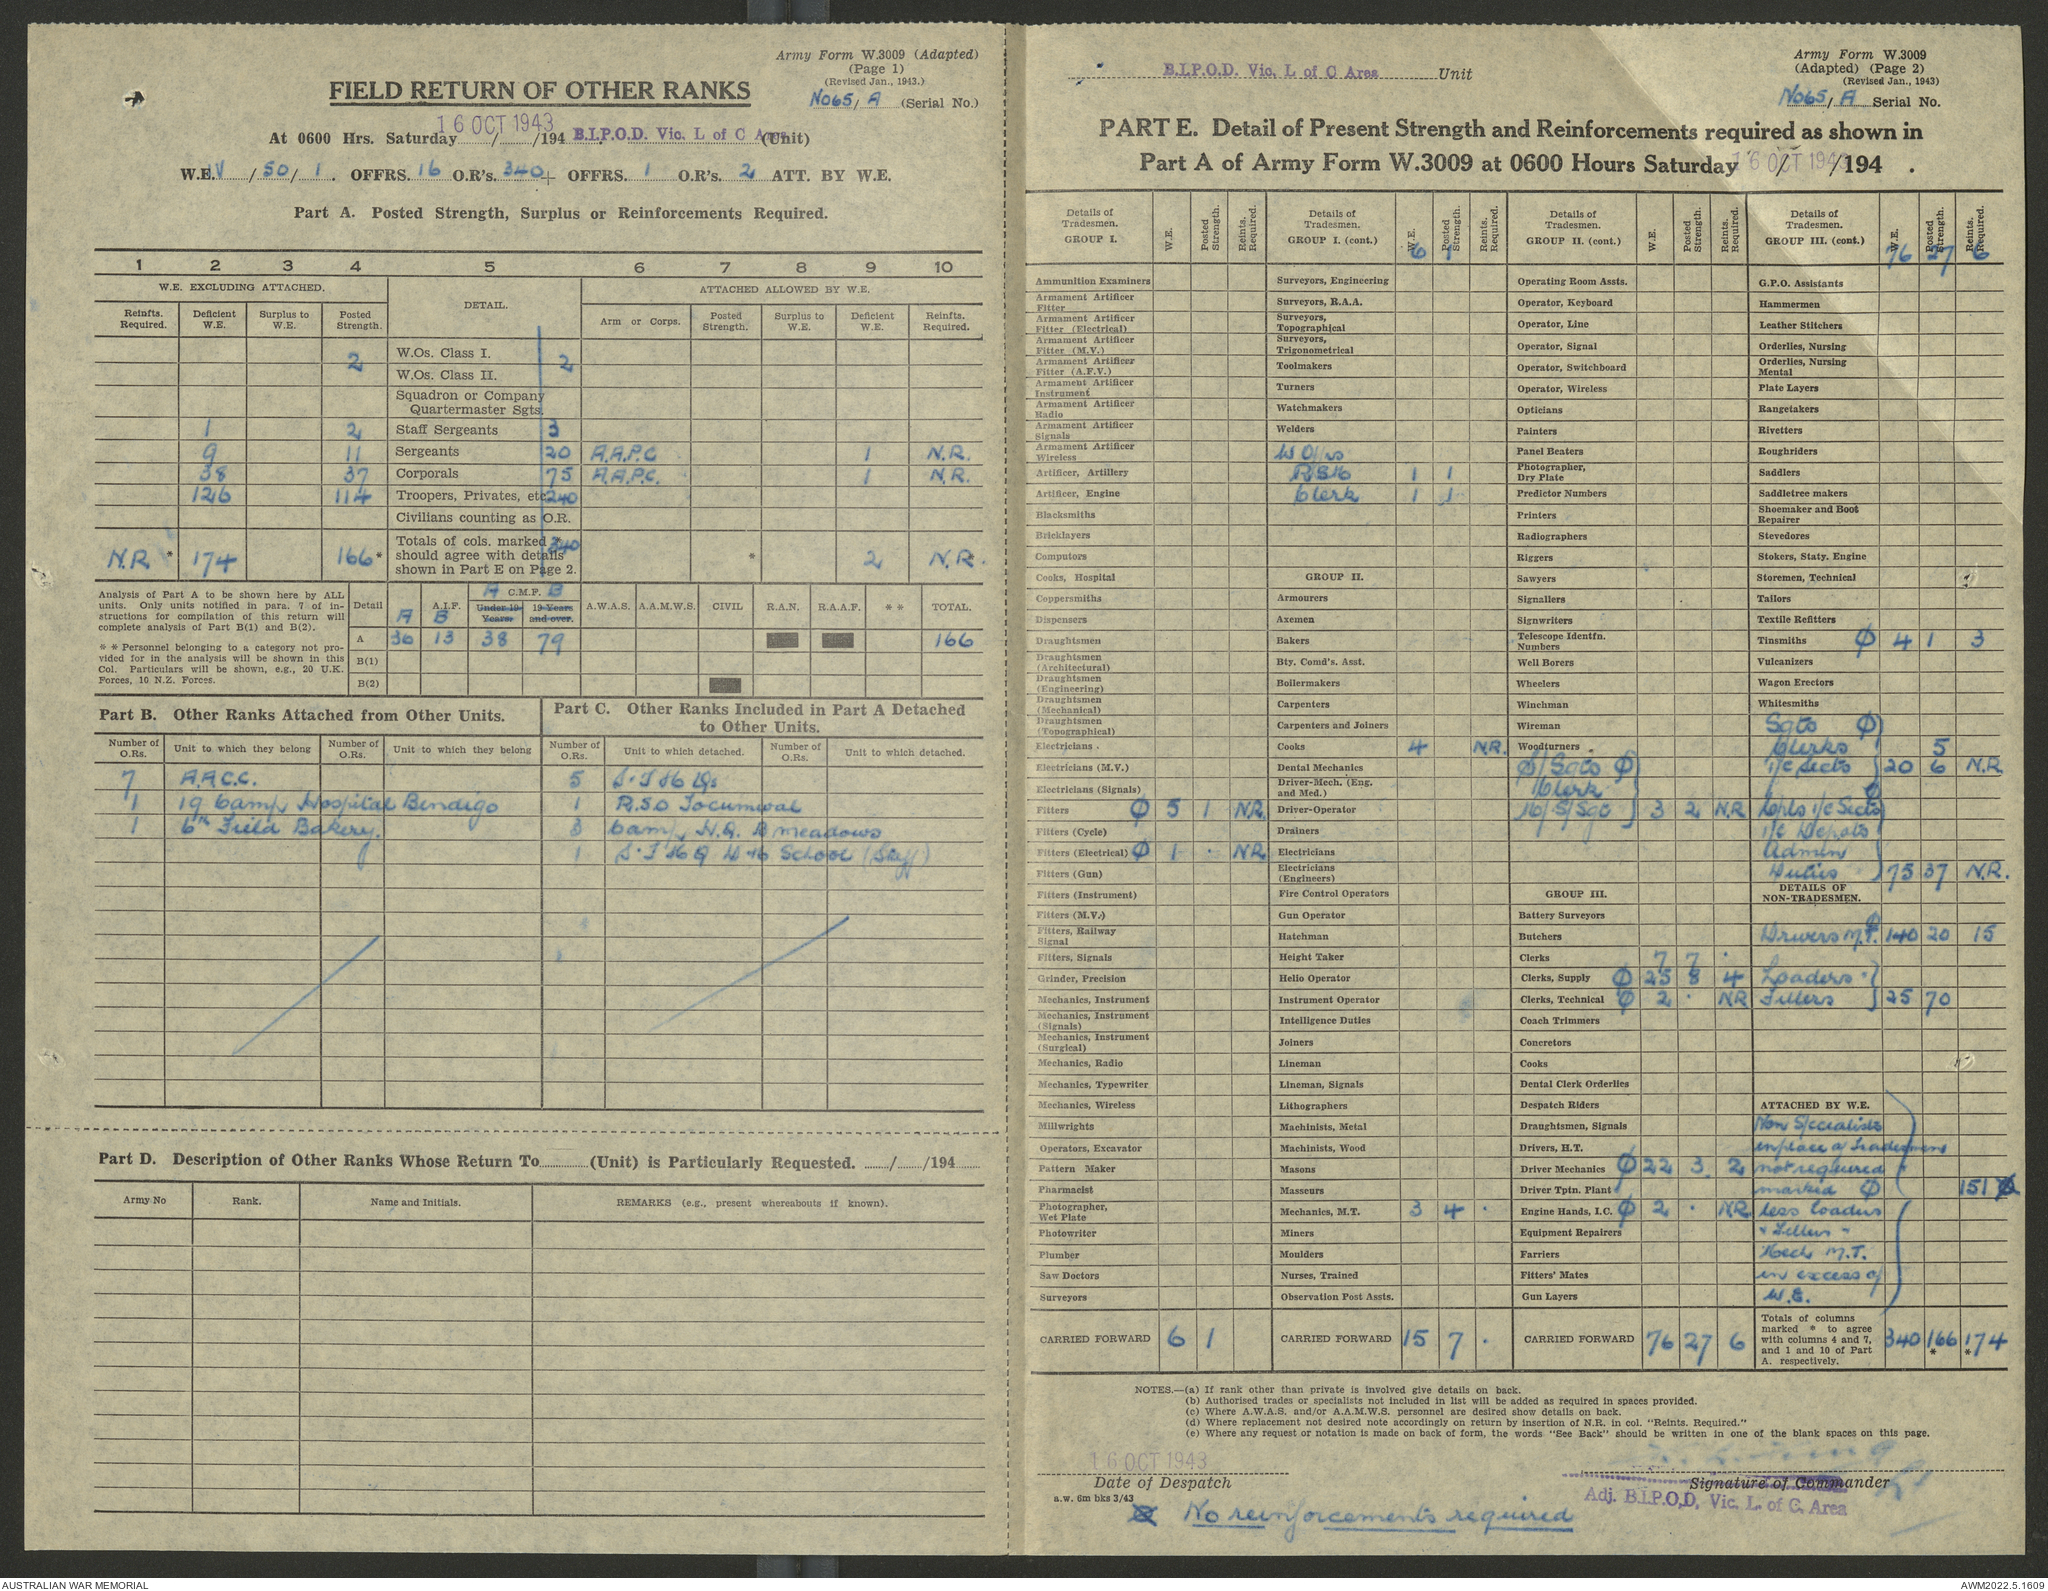 Army Form W.3009 (Adapted)
(Page 1)
(Revised Jan., 1943.)
No65/A (Serial No.)
FIELD RETURN OF OTHER RANKS
At 0600 Hrs. Saturday 16 OCT 1943 /194 B.I.P.O.D. Vic. L of C Area (Unit)
W.E. IV / 50 / 1 . OFFRS. 16 O.R's. 340 + OFFRS. 1 O.R's. 2 ATT. BY W.E.
Part A. Posted Strength, Surplus or Reinforcements Required.
1 2 3 4 5 6 7 8 9 10
W.E. EXCLUDING ATTACHED. DETAIL. ATTACHED ALLOWED BY W.E.
Reinfts. Required. Deficient W.E. Surplus to W.E. Posted Strength. Arm or Corps. Posted Strength. Surplus to W.E. Deficient W.E. Reinfts. Required.
2 W.Os. Class I. 2
W.Os. Class II.
Squadron or Company Quartermaster Sgts.
1 2 Staff Sergeants 3
9 11 Sergeants 20 A.A.P.C 1 N.R.
38 37 Corporals 75 A.A.P.C. 1 N.R.
126 114 Troopers, Privates, etc. 240
Civilians counting as O.R.
N.R. * 174 166 * Totals of cols. marked * should agree with details shown in Part E on Page 2. 340 * 2 N.R.*
Analysis of Part A to be shown here by ALL units. Only units notified in para. 7 of instructions for compilation of this return will complete analysis of Part B(1) and B(2).
* * Personnel belonging to a category not provided for in the analysis will be shown in this Col. Particulars will be shown, e.g., 20 U.K. Forces, 10 N.Z. Forces.
Detail A.I.F. A B C.M.F. A B Under 19 Years. 19 Years and over. A.W.A.S. A.A.M.W.S. CIVIL R.A.N. R.A.A.F. * * TOTAL.
A 36 13 38 79 166
B(1)
B(2)
Part B. Other Ranks Attached from Other Units.
Number of O.Rs. Unit to which they belong Number of O.Rs. Unit to which they belong
7 A.A.C.C.
1 19 Camp Hospital Bendigo
1 6th Field Bakery.
Part C. Other Ranks Included in Part A Detached to Other Units.
Number of O.Rs. Unit to which detached. Number of O.Rs. Unit to which detached.
5
1 R.S.O Tocumwal
3 Camp H.Q. B meadows
1 School (Staff)
Part D. Description of Other Ranks Whose Return To (Unit) is Particularly Requested. / /194
Army No Rank. Name and Initials. REMARKS (e.g., present whereabouts if known).
B.I.P.O.D. Vic. L of C Area Unit
Army Form W.3009
(Adapted) (Page 2)
(Revised Jan., 1943)
No65/A Serial No.
PART E. Detail of Present Strength and Reinforcements required as shown in
Part A of Army Form W.3009 at 0600 Hours Saturday 16 OCT 1943 /194 .
Details of Tradesmen. GROUP I. W.E. Posted Strength. Reints. Required.
Ammunition Examiners
Armament Artificer Fitter
Armament Artificer Fitter (Electrical)
Armament Artificer Fitter (M.V.)
Armament Artificer Fitter (A.F.V.)
Armament Artificer Instrument
Armament Artificer Radio
Armament Artificer Signals
Armament Artificer Wireless
Artificer, Artillery
Artificer, Engine
Blacksmiths
Bricklayers
Computors
Cooks, Hospital
Coppersmiths
Dispensers
Draughtsmen
Draughtsmen (Architectural)
Draughtsmen (Engineering)
Draughtsmen (Mechanical)
Draughtsmen (Topographical)
Electricians
Electricians (M.V.)
Electricians (Signals)
Fitters Ø 5 1 N.R.
Fitters (Cycle)
Fitters (Electrical) Ø 1 . NR
Fitters (Gun)
Fitters (Instrument)
Fitters (M.V.)
Fitters, Railway Signal
Fitters, Signals
Grinder, Precision
Mechanics, Instrument
Mechanics, Instrument (Signals)
Mechanics, Instrument (Surgical)
Mechanics, Radio
Mechanics, Typewriter
Mechanics, Wireless
Millwrights
Operators, Excavator
Pattern Maker
Pharmacist
Photographer, Wet Plate
Photowriter
Plumber
Saw Doctors
Surveyors
CARRIED FORWARD 6 1
Details of Tradesmen. GROUP I. (cont.) W.E. Posted Strength. Reints. Required.
6 1
Surveyors, Engineering
Surveyors, R.A.A.
Surveyors, Topographical
Surveyors, Trigonometrical
Toolmakers
Turners
Watchmakers
Welders
1 1
Clerk 1 1
GROUP II.
Armourers
Axemen
Bakers
Bty. Comd's. Asst.
Boilermakers
Carpenters
Carpenters and Joiners
Cooks 4 N.R.
Dental Mechanics
Driver-Mech. (Eng. and Med.)
Driver-Operator
Drainers
Electricians
Electricians (Engineers)
Fire Control Operators
Gun Operator
Hatchman
Height Taker
Helio Operator
Instrument Operator
Intelligence Duties
Joiners
Lineman
Lineman, Signals
Lithographers
Machinists, Metal
Machinists, Wood
Masons
Masseurs
Mechanics, M.T. 3 4 .
Miners
Moulders
Nurses, Trained
Observation Post Assts.
CARRIED FORWARD 15 7 .
Details of Tradesmen. GROUP II. (cont.) W.E. Posted Strength. Reints. Required.
Operating Room Assts.
Operator, Keyboard
Operator, Line
Operator, Signal
Operator, Switchboard
Operator, Wireless
Opticians
Painters
Panel Beaters
Photographer, Dry Plate
Predictor Numbers
Printers
Radiographers
Riggers
Sawyers
Signallers
Signwriters
Telescope Identfn. Numbers
Well Borers
Wheelers
Winchman
Wireman
Woodturners
S/Sgts Ø
Clerk
S/Sgt 3 2 N.R
GROUP III.
Battery Surveyors
Butchers
Clerks 7 7 .
Clerks, Supply Ø 25 8 4
Clerks, Technical Ø 2 . NR
Coach Trimmers
Concretors
Cooks
Dental Clerk Orderlies
Despatch Riders
Draughtsmen, Signals
Drivers, H.T.
Driver Mechanics Ø 22 3 2
Driver Tptn. Plant
Engine Hands, I.C. Ø 2 . NR
Equipment Repairers
Farriers
Fitters' Mates
Gun Layers
CARRIED FORWARD 76 27 6
Details of Tradesmen. GROUP III. (cont.) W.E. Posted Strength. Reints. Required.
76 27 6
G.P.O. Assistants
Hammermen
Leather Stitchers
Orderlies, Nursing
Orderlies, Nursing Mental
Plate Layers
Rangetakers
Rivetters
Roughriders
Saddlers
Saddletree makers
Shoemaker and Boot Repairer
Stevedores
Stokers, Staty. Engine
Storemen, Technical
Tailors
Textile Refitters
Tinsmiths Ø 4 1 3
Vulcanizers
Wagon Erectors
Whitesmiths
Sgts Ø
Clerks 5
i/c Sects 20 6 N.R
Cpls i/c Sects Ø
i/c Depots
Admin
Duties 75 37 N.R.
DETAILS OF NON-TRADESMEN.
Drivers M.T. Ø 140 20 15
Loaders
Fillers 25 70
ATTACHED BY W.E.
Non Specialists
in place of Tradesmen
not required
marked Ø 151 Ø
less loaders
+ Fillers -
Mech M.T.
in excess of
W.E.
Totals of columns marked * to agree with columns 4 and 7, and 1 and 10 of Part A. respectively. 340 166 * * 174
NOTES.—(a) If rank other than private is involved give details on back.
(b) Authorised trades or specialists not included in list will be added as required in spaces provided.
(c) Where A.W.A.S. and/or A.A.M.W.S. personnel are desired show details on back.
(d) Where replacement not desired note accordingly on return by insertion of N.R. in col. "Reints. Required."
(e) Where any request or notation is made on back of form, the words "See Back" should be written in one of the blank spaces on this page.
16 OCT 1943
Date of Despatch
Signature of Commander
Adj. B.I.P.O.D. Vic. L. of C. Area
a.w. 6m bks 3/43
No reinforcements required
AUSTRALIAN WAR MEMORIAL
AWM2022.5.1609